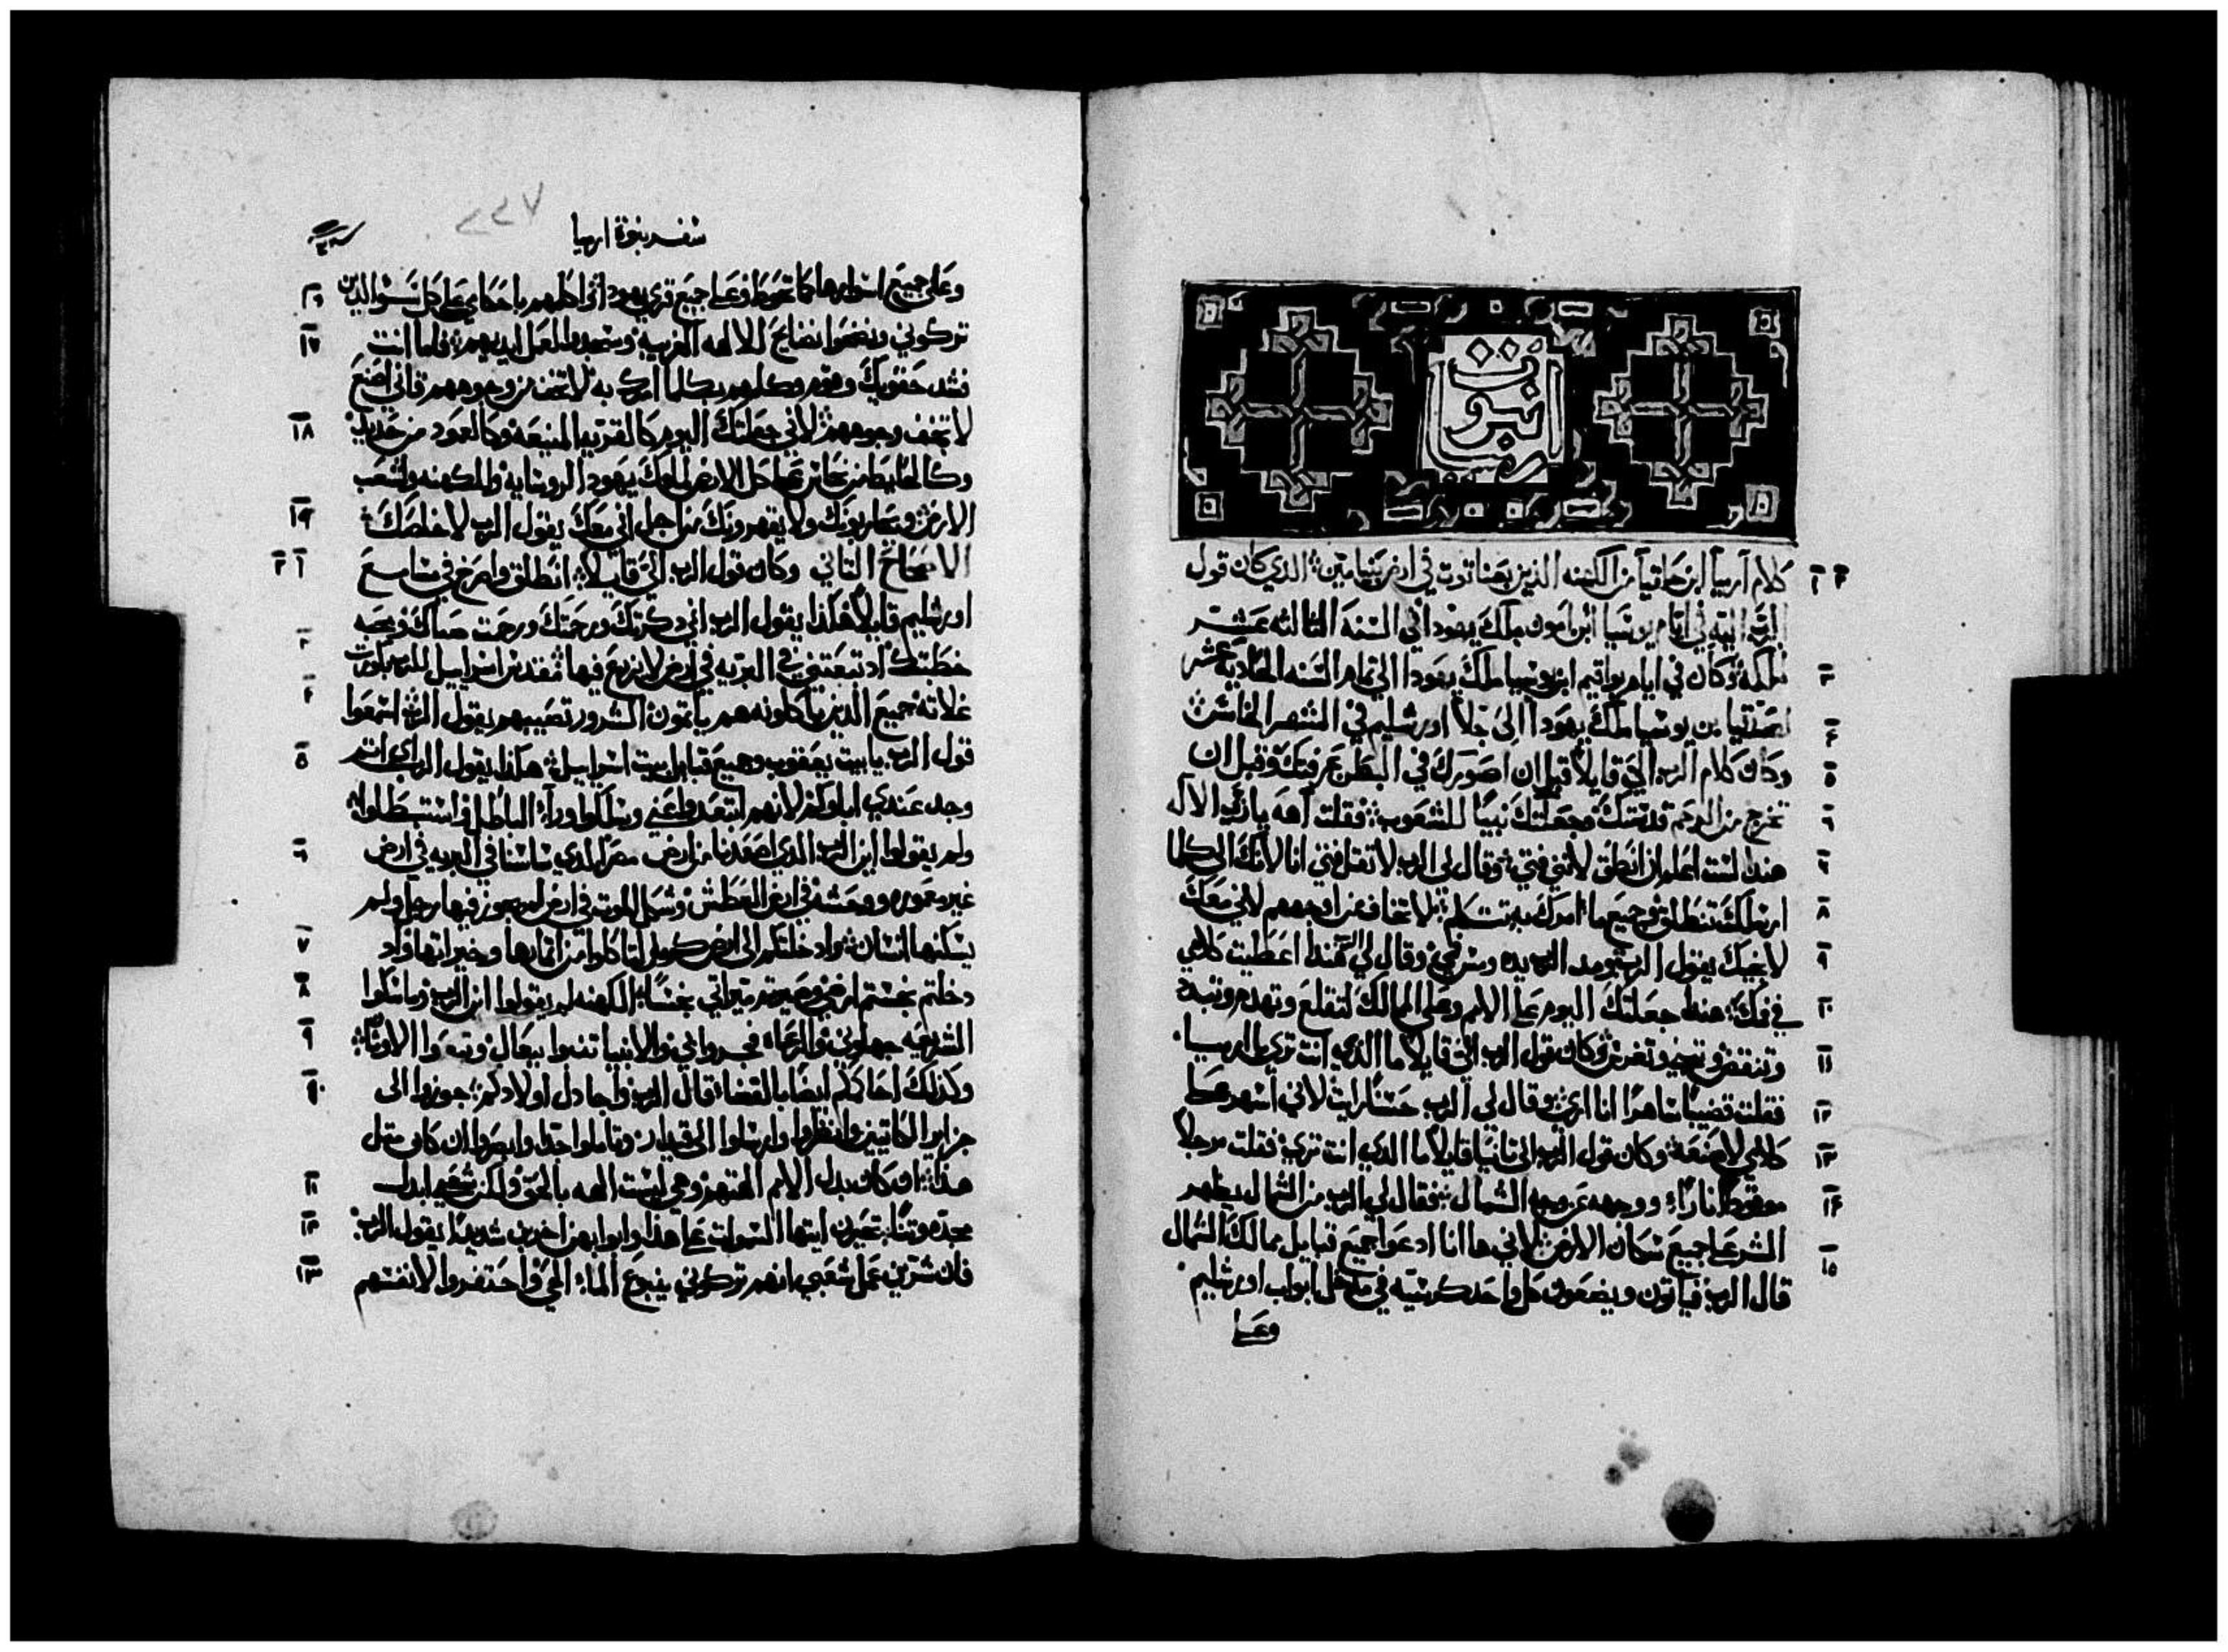 نبوة
ارميا
كلام ارميا ابن حلقيا من الكهنه الذين بعناتوت في ارض بنيامين الدي كان قول
الرب اليه في ايام يوشيا ابن امون ملك يهودا في السنة الثالثه عشر
لملكه وكان في ايام يواقيم ابن يوشيا ملك يهودا الي تمام السنه الحاديه عشر
لصدقيا بن يوشيا ملك يهودا الى جلا اورشليم في الشهر الخامس
وكان كلام الرب الي قايلا قبل ان اصورك في البطن عرفتك وقبل ان
تخرج من الرحم قدستك وجعلتك نبيا للشعوب فقلت آهه يا رب الاله
هندا لست اعلم ان انطق لانني فتي وقال لي الرب لا تقل فتي انا لانك الى كلما
ارسلك تنطلق وجميع ما امرك به تتكلم لا تخاف من اوجههم لاني معك
لانجيك يقول الرب ومد الرب يده ومس فمي وقال لي الرب هندا اعطيت كلامي
في فمك هندا جعلتك اليوم علي الامم وعلي الممالك لتقلع وتهدم وتبيد
وتنقض وتبني وتغرس وكان قول الرب الي قايلا ما الذي انت تري يا ارميا
فقلت قضيبا ساهرا انا اري وقال لي الرب حسنا رايت لاني اسهر علي
كلامي لاصنعه وكان قول الرب الى ثانيا قايلا ما الدي انت تري فقلت مرجلا
موقودا نارا ووجهه عن وجه الشمال فقال لي الرب من الشمال يظهر
الشر علي جميع سكان الارض لاني ها انا ادعوا جميع قبايل ممالك الشمال
قال الرب فياتون ويضعون كل واحد كرسيه في مدخل ابواب اورشليم
وعلي
سفر نبوة ارميا
٢٢٧
وعلى جميع اسوارها كما تحوط وعلي جميع قري يهودا اني اكلمهم باحكامي على كل سو الدين
تركوني ونضحوا نضايح للالهه الغريبة وسجدوا لعمل ايديهم فاما انت
فشد حقويك وقم وكلمهم بكلما امرك به لا تخف من وجوههم فاني اصنع
لا تخف وجوههم لاني جعلتك اليوم كالقريه المنيعه وكالعمود من حديد
وكالحايط من نحاس علي كل الارض لملوك يهودا لروسايه وللكهنه ولشعب
الارض ويحاربونك ولا يقهرونك من اجل اني معك يقول الرب لاخلصك
الاصحاح التاني وكان قول الرب الي قايلا انطلق واصرخ في مسامع
اورشليم قايلا هكذا يقول الرب اني دكرتك ورحمتك ورحمت صباك ومحبه
خطبتك اد تبعتني في البريه في ارض لا يزرع فيها مقدس اسراييل للرب بكورت
غلاته جميع الذين ياكلونه هم ياتمون الشرور تصيبهم يقول الرب اسمعوا
قول الرب يا بيت يعقوب وجميع قبايل بيت اسراييل هكذا يقول الرب اي اتم
وجد عندي اباوكم لانهم ابتعدوا عني وسلكوا ورآء الباطل واستبطلوا
ولم يقولوا اين الرب الذي اصعدنا من ارض مصر الدي ساسنا في البريه في ارض
غير معموره ووحشه في ارض العطش وشكل الموت في ارض لم يجوز فيها رجل ولم
يسكنها انسان وادخلتكم الى ارض كرمل لتاكلوا من اثمارها وخيراتها واد
دخلتم نجستم ارضي وصيرتم ميراتي نجسا الكهنه لم يقولوا اين الرب وماسكوا
الشريعه جهلوني والرعاه جحدوا بي والانبيا تنبوا ببعال وتبعوا الاوثان
ولذلك احاكمكم ايضا بالقضا قال الرب واجادل اولادكم جوزوا الى
جزاير الكاتيين وانظروا وارسلوا الى قيدار وتاملوا جدا وابصروا ان كان متل
هذا ان كان بدل الامم الهتهم وهي ليست الهه بالحق ولكن شعبي ابدل
مجده وثنا تحيري ايتها السموات علي هذا وابوابهن اخربن شديدا يقول الرب
فان شرين عمل شعبي انهم تركوني ينبوع الماء الحي واحتفروا لانفسهم